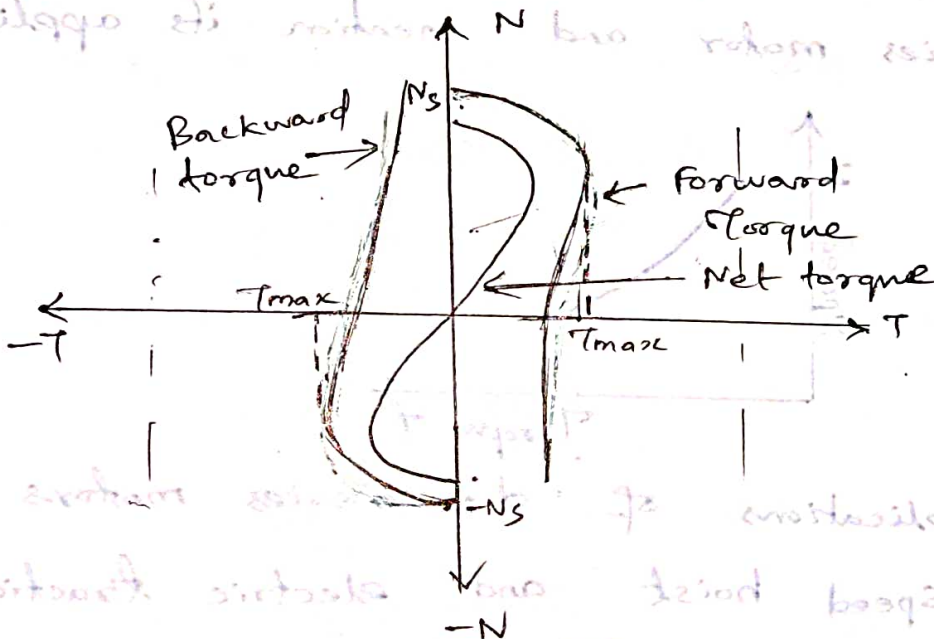 N
Ns
Backward
torque
Forward
Torque
Net torque
Tmax
-T
Tmax
T
-Ns
-N